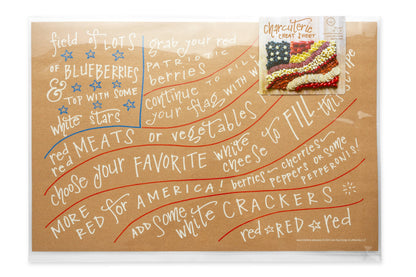 charcuterie
CHEAT SHEET
field of LOTS
of BLUEBERRIES
& TOP WITH SOME
white stars
grab your red
PATRIOTIC
berries
continue TO FILL
your flag WITH
red MEATS or vegetables
red
choose your FAVORITE white
cheese TO FILL this
MORE berries ~ cherries ~
RED for AMERICA! PEPPERS OR SOME
PEPPERONIS!
ADD some white CRACKERS
red RED red